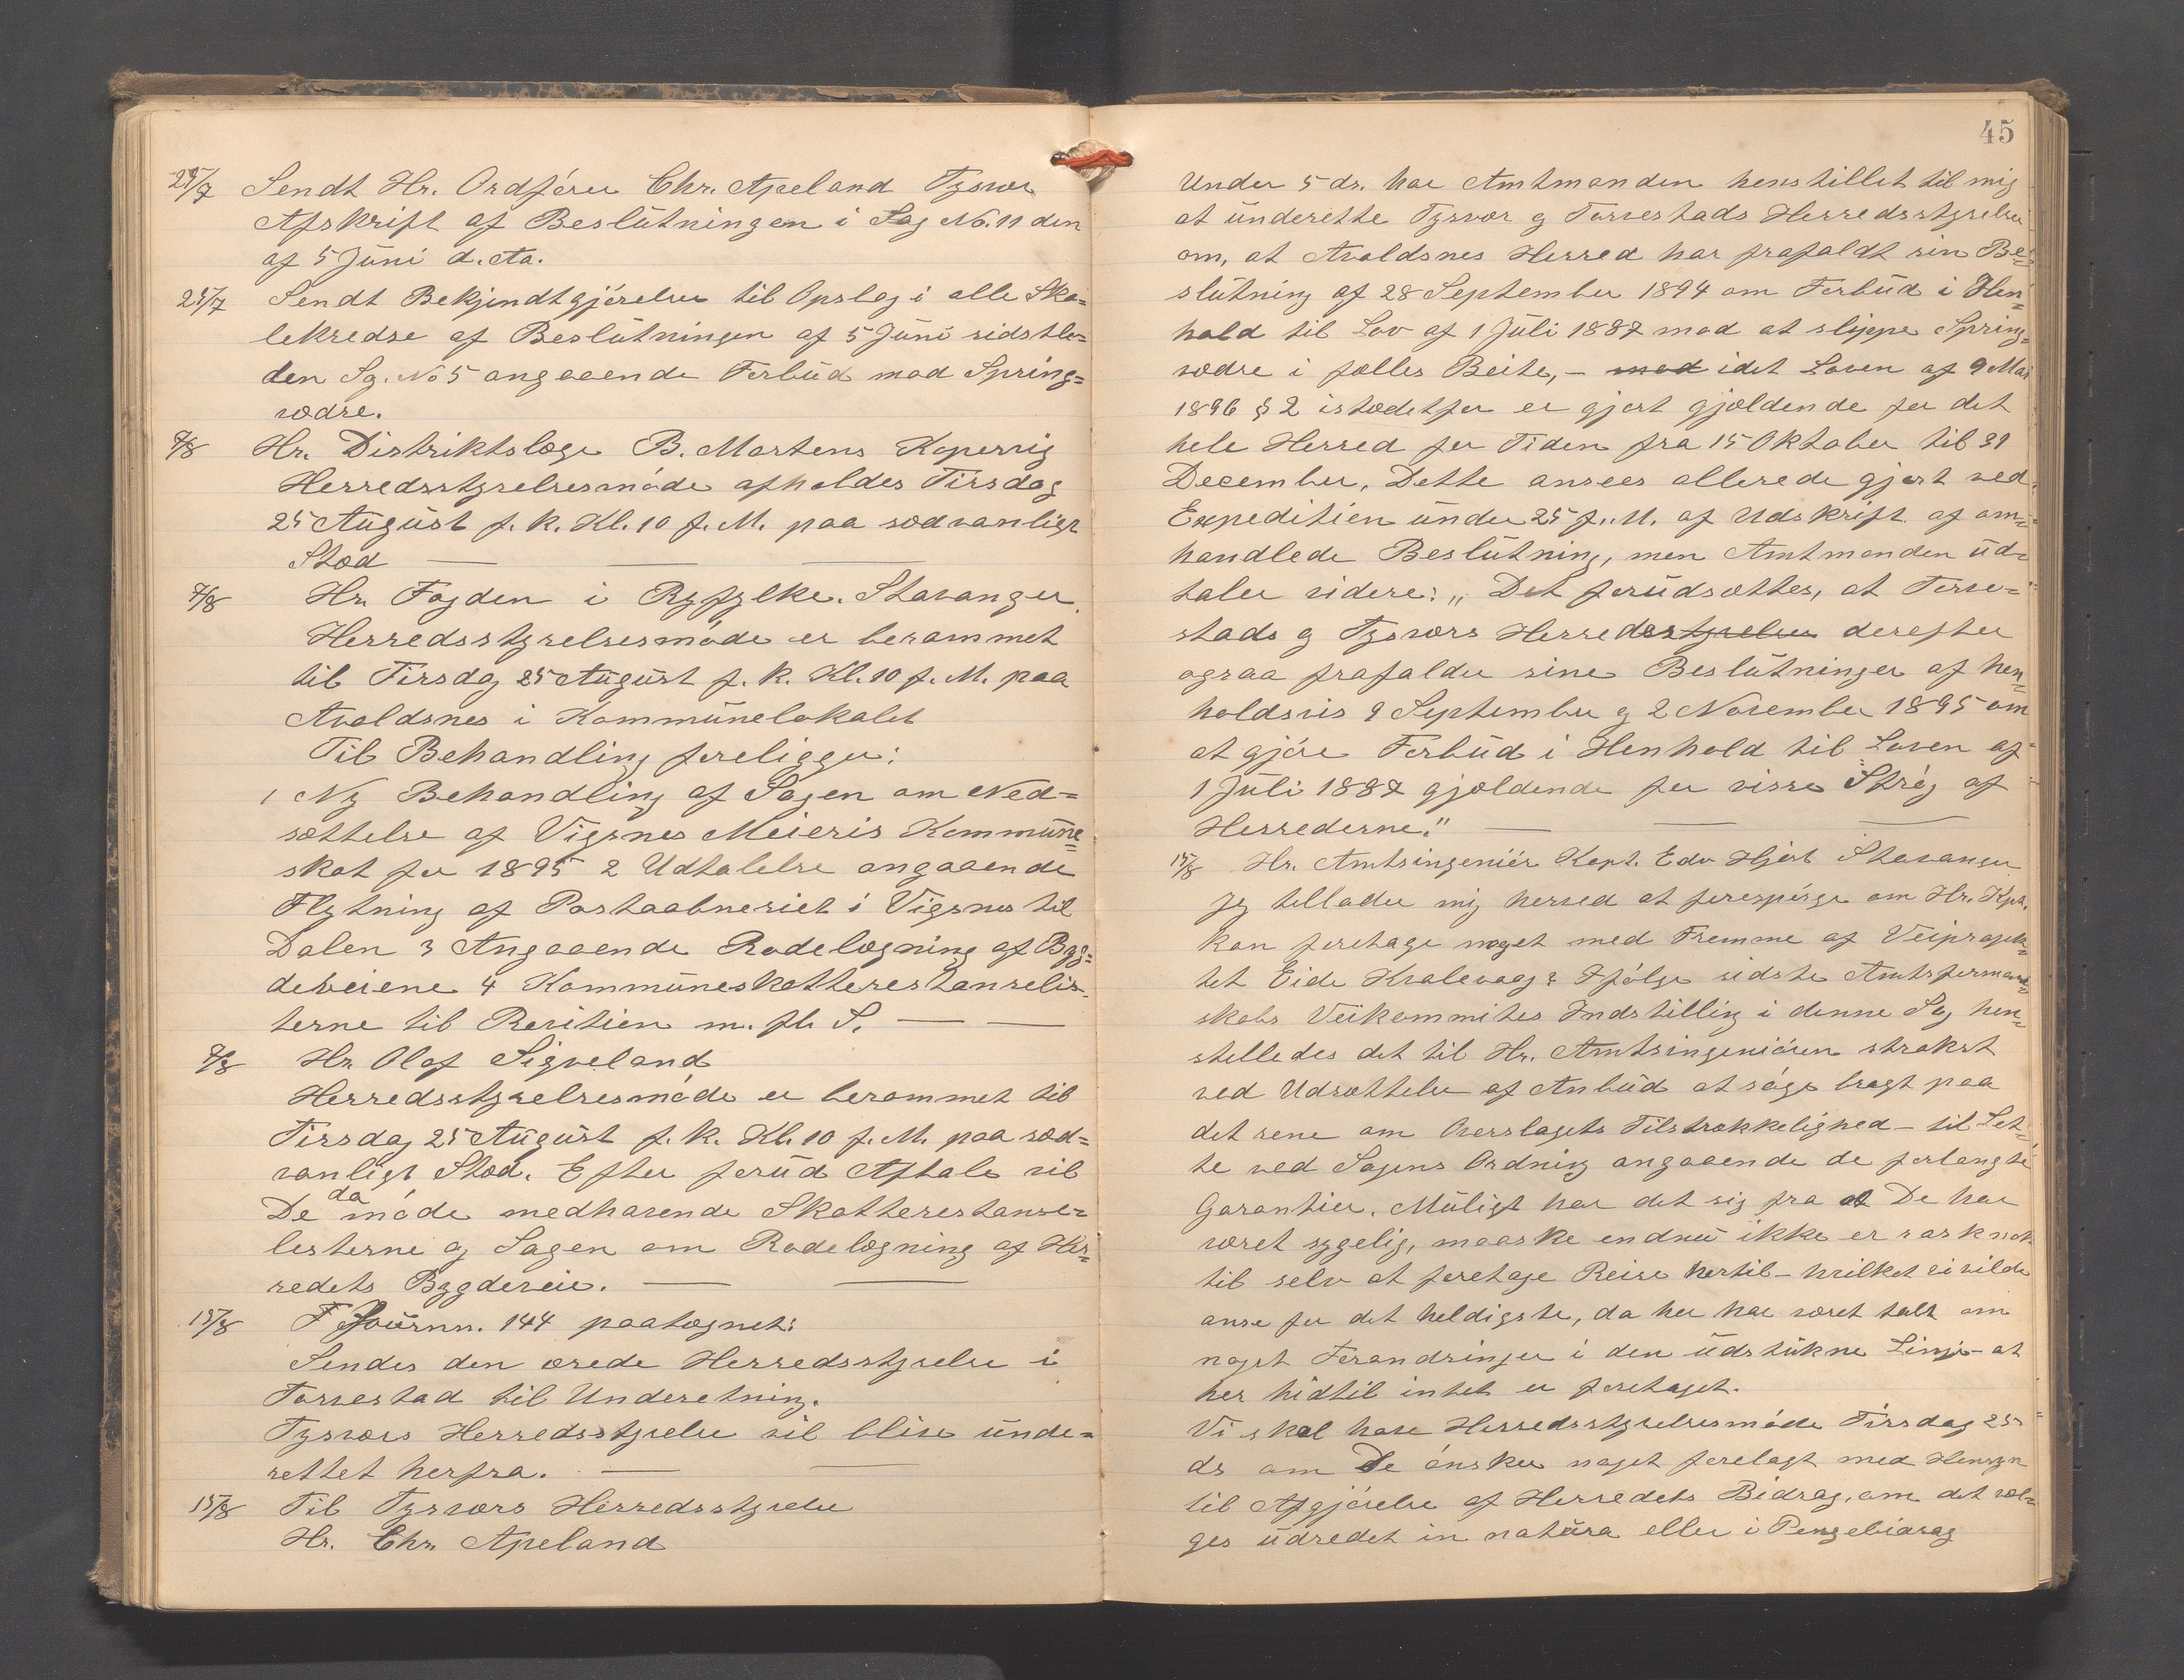 25/7 Sendt Hr. Ordfører Chr. Apeland Tysvær
Afskrift af Beslutningen i Sag No. 11 den
af 5 Juni d. Aa.
25/7 Sendt Bekjendtgjørelser til Opslag i alle Sko=
lekredse af Beslutningen af 5 Juni sidstle=
den Sg. No 5 angaaende Forbud mod Spring=
vædre.
7/8 Hr. Distriktslæge B. Martens Kopervig
Herredsstyrelsesmøde afholdes Tirsdag
25 August f. k. Kl. 10 f. M. paa sædvanligt
Sted
7/8 Hr. Fogden i Ryfylke. Stavanger.
Herredsstyrelsesmøde er berammet
til Tirsdag 25 August f. k. Kl. 10 f. M. paa
Avaldsnes i Kommunelokalet
Til Behandling foreligger:
1 Ny Behandling af Sagen om Ned=
sættelse af Vigsnes Meieris Kommune=
skat for 1895 2 Udtalelse angaaende
Flytning af Postaabneriet i Vigsnes til
Dalen 3 Angaaende Rodelægning af Byg=
deveiene 4 Kommuneskatterestanselis=
terne til Revition m. fl. S.
7/8 Hr. Olaf Sigveland
Herredsstyrelsesmøde er berammet til
Tirsdag 25 August f. k. Kl. 10 f. M. paa sæd=
vanligt Sted. Efter forud Aftale vil
De da møde medhavende Skatterestanse=
listerne og Sagen om Rodelægning af Her=
redets Bygdeveie.
15/8 F Journn. 144 paategnet:
Sendes den ærede Herredsstyrelse i
Torvestad til Underetning.
Tysværs Herredsstyrelse vil blive unde=
rettet herfra.
15/8 Til Tysværs Herredsstyrelse
Hr. Chr. Apeland
45
Under 5 ds. har Amtmanden henstillet til mig
at underette Tysvær og Torvestads Herredsstyrelser
om, at Avaldsnes Herred har frafaldt sin Be=
slutning af 28 September 1894 om Forbud i Hen=
hold til Lov af 1 Juli 1887 mod at slippe Spring=
vædre i fælles Beite, - mod idet Loven af 9 Mai
1896 § 2 istædetfor er gjort gjældende for det
hele Herred for Tiden fra 15 Oktober til 31
December. Dette ansees allerede gjort ved
Expeditien under 25 f. M. af Udskrift af om=
handlede Beslutning, men Amtmanden ud=
taler videre: „Det forudsættes, at Torve=
stads og Tysværs Herredsstyrelser derefter
ogsaa frafalder sine Beslutninger af hen=
holdsvis 9 September og 2 November 1895 om
at gjøre Forbud i Henhold til Loven af
1 Juli 1887 gjældende for visse Strøg af
Herrederne."
15/8 Hr. Amtsingeniør Kapt. Edv Hjort Stavanger
Jeg tillader mig herved at forespørge om Hr. Kpt.
kan foretage noget med Fremme af Veiprojek=
tet Eide Kvalevaag? Ifølge sidste Amtsformand=
skabs Veikommites Indstilling i denne Sag hen=
stilledes det til Hr. Amtsingeniøren strakst
ved Udsættelse af Anbud at søge bragt paa
det rene om Overslagets Tilstrækkelighed - til Let=
te ved Sagens Ordning angaaende de forlangte
Garantier. Muligt har det sig fra at De har
været sygelig, maaske endnu ikke er rask nok
til selv at foretage Reise hertil - hvilket vi vilde
anse for det heldigste, da her har været talt om
noget Forandringer i den udstukne Linje - at
her hidtil intet er foretaget.
Vi skal have Herredsstyrelsesmøde Tirsdag 25
ds om De ønsker noget forelagt med Hensyn
til Afgjørelse af Herredets Bidrag, om det væl=
ges udredet in natura eller i Pengebidrag